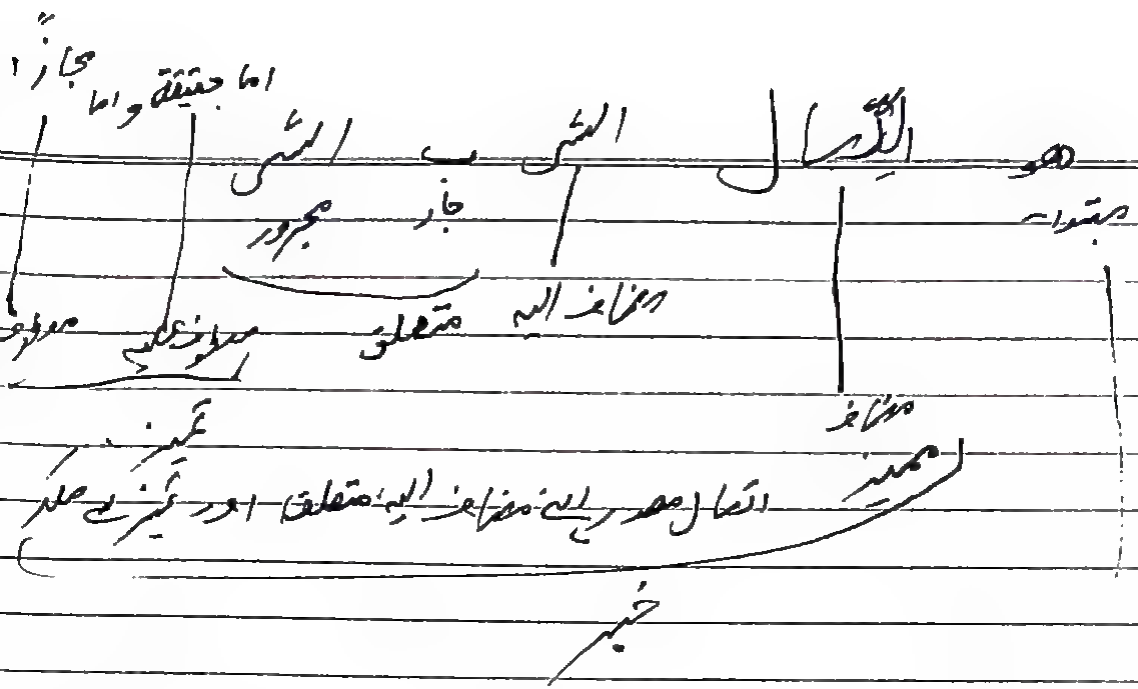 هو اتصال الشئ ب الشئ اما حقيقة و اما مجازًا
مبتداء جار مجرور
مضاف اليه متعلق معطوف عليه معطوف
مضاف تميز
مميز اتصال مصدر اپنے مضاف اليه، متعلق اور تميز سے ملکر
خبر